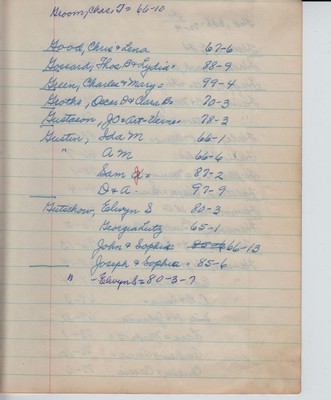 Groom, Chas, J = 66-10
Good, Chris & Lena 67-6
Gossard, Thos B & Lydia = 88-9
Green, Charles & Mary = 99-4
Grothe, Oscar D & Clara B = 70-3
Gustason, JO & Art-Verne = 78-3
Gustin, Ida M 66-1
" A M 66-6
Sam = 87-2
D & A 97-9
Gutschow, Elwyn S 80-3
Georgia Lutz 65-1
John & Sophia 85-6 66-13
Joseph & Sophia = 85-6
" - Elwyn S = 80-3-7